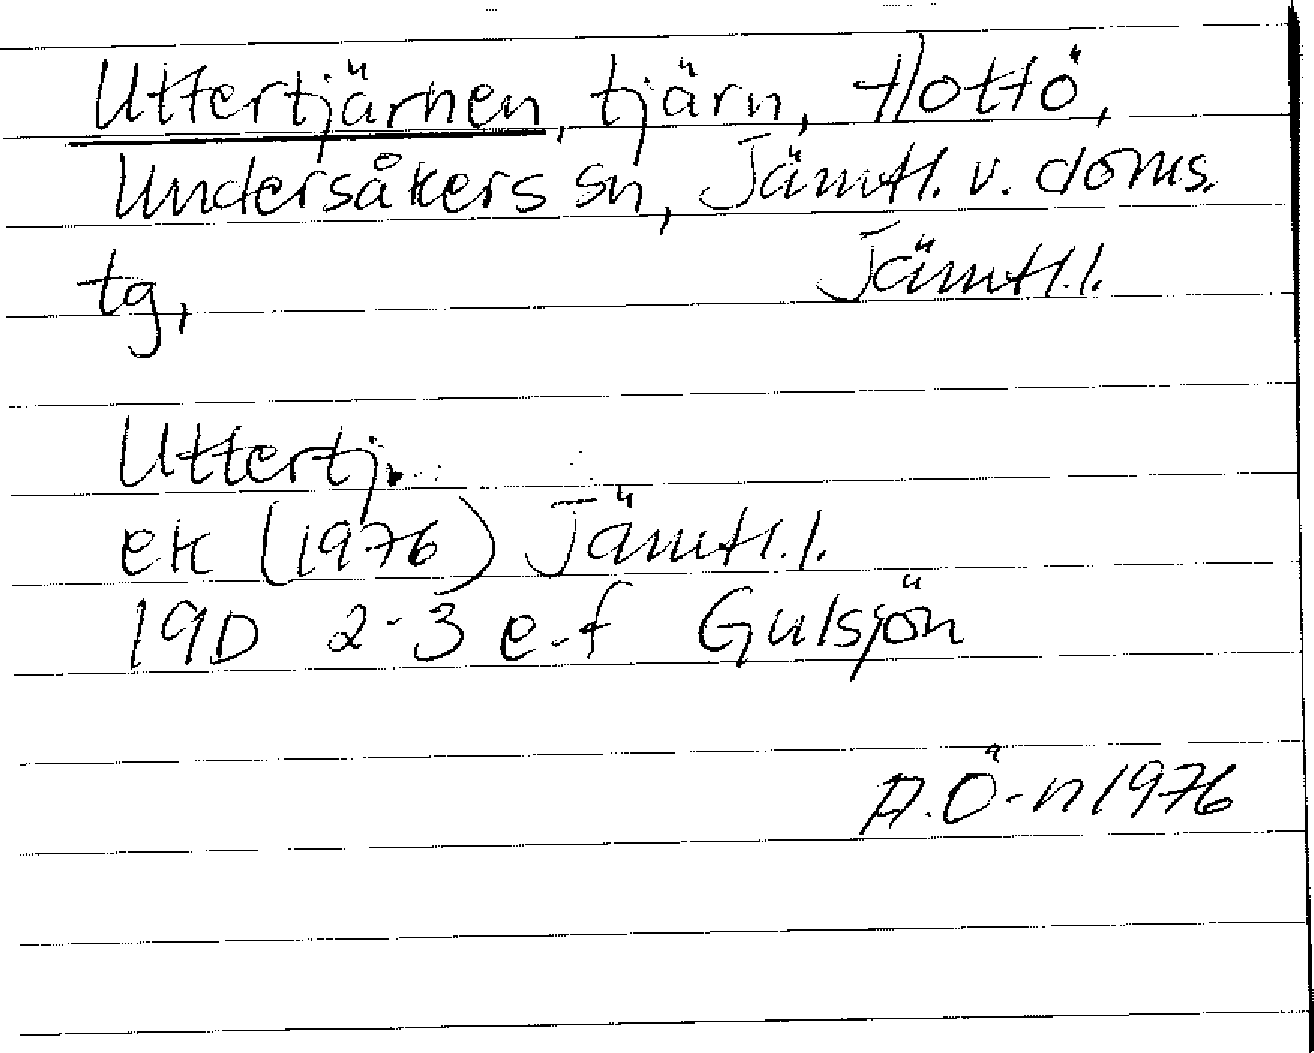 Uttertjärnen, tjärn, Hottö,
Undersåkers sn, Jämtl. v. doms.
tg, Jämtl.l.
Uttertj.
ek (1976) Jämtl.l.
19D 2-3 e-f Gulsjön
A.Ö-n 1976